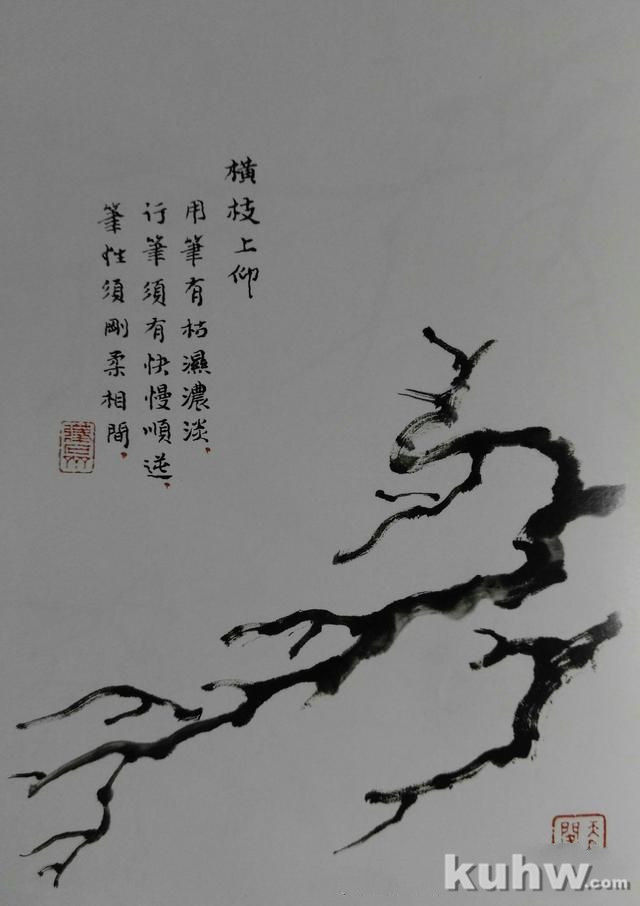 橫枝上仰
用筆有枯濕濃淡、
行筆須有快慢順逆、
筆性須剛柔相間、
kuhw.com